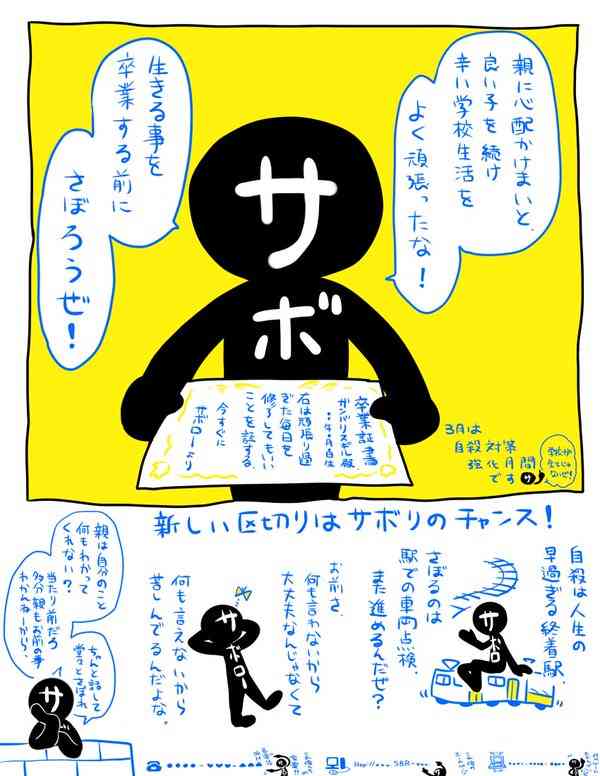 親に心配かけまいと、
良い子を続け
辛い学校生活を
よく頑張ったな!
生きる事を
卒業する前に
さぼろうぜ!
サ
ボ
卒業証書
ガンバリスギル殿
右は頑張り過
ぎた毎日を
修了してもいい
ことを証する
今すぐに
サボローより
3月は
自殺対策
強化月間
です
サ
新しい区切りはサボリのチャンス!
自殺は人生の
早過ぎる終着駅.
さぼるのは
駅での車両点検.
また進めるんだぜ?
サボロー
お前さ、
何も言わないから
大丈夫なんじゃなくて
何も言えないから
苦しんでるんだよな。
サボロー
親は自分のこと
何もわかって
くれない?
当たり前だろ
多分親もお前の事
わかんねーから、
ちゃんと話して
堂々とさぼれ
サボ